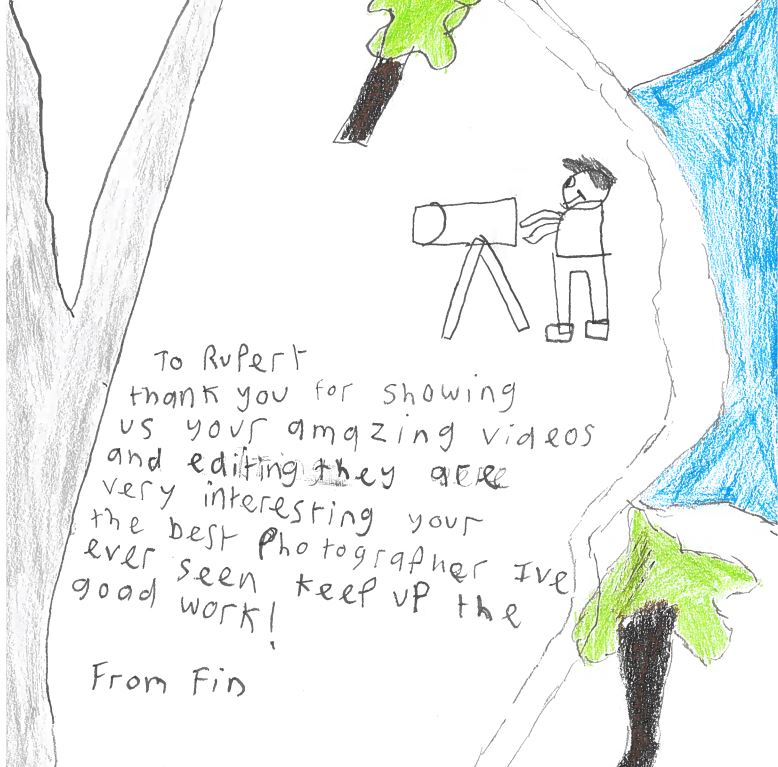 To Rupert
thank you for showing
us your amazing videos
and editing they are
very interesting your
the best photographer Ive
ever seen keep up the
good work!
From Fin